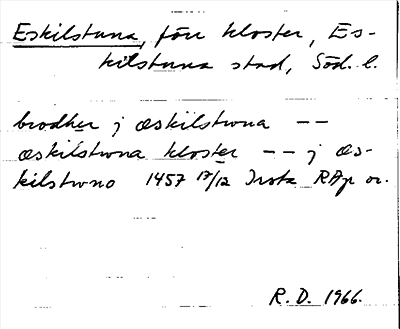 Eskilstuna, förr kloster, Es-
kilstuna stad, Söd. l.
brodher j æskilstwna --
æskilstwna kloster -- j æs-
kilstwno 1457 17/12 Irsta RAp or.
R. D. 1966.